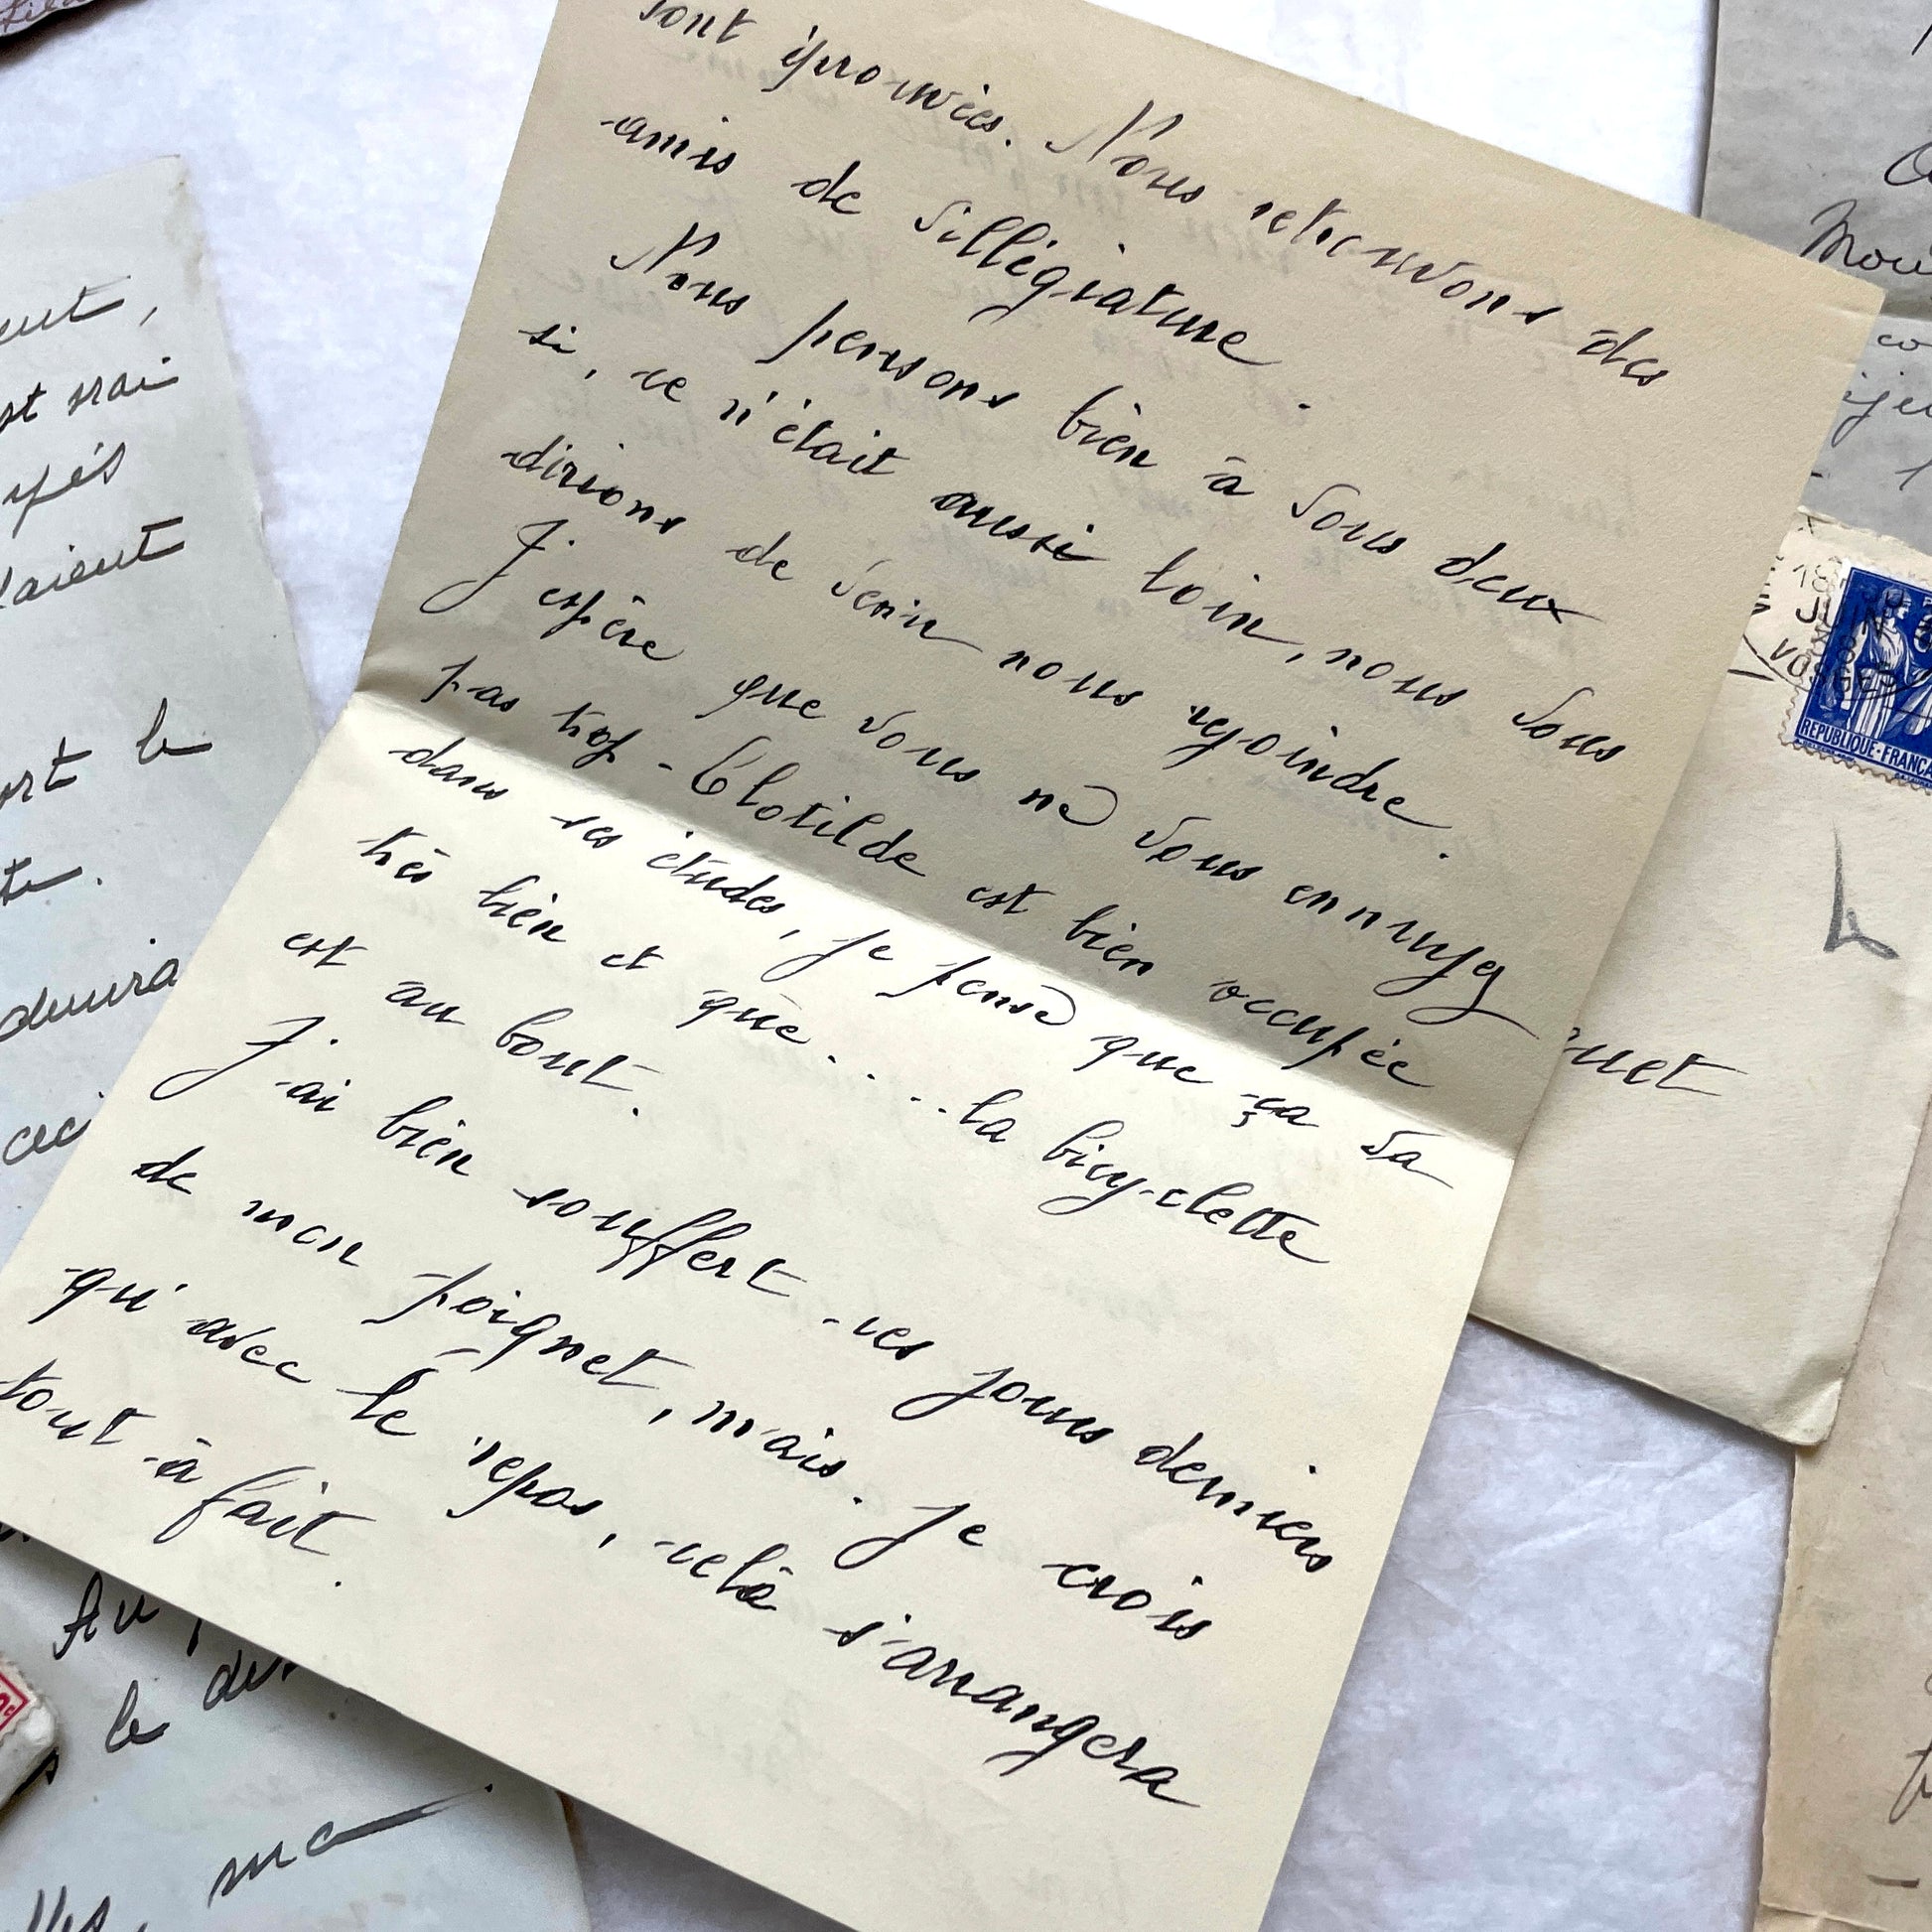 sont éprouvées. Nous retrouvons des
amis de villégiature.
Nous pensons bien à vous deux
si, ce n'était aussi loin, nous vous
dirions de venir nous rejoindre.
J'espère que vous ne vous ennuyez
pas trop - Clotilde est bien occupée
dans ses études, je pense que ça va
très bien et que.... la bicyclette
est au bout.
J'ai bien souffert ces jours derniers
de mon poignet, mais. je crois
qu'avec le repos, cela s'arrangera
tout à fait.
vrai
laient
le
ceci
Au
le
ma
REPUBLIQUE-FRANCA